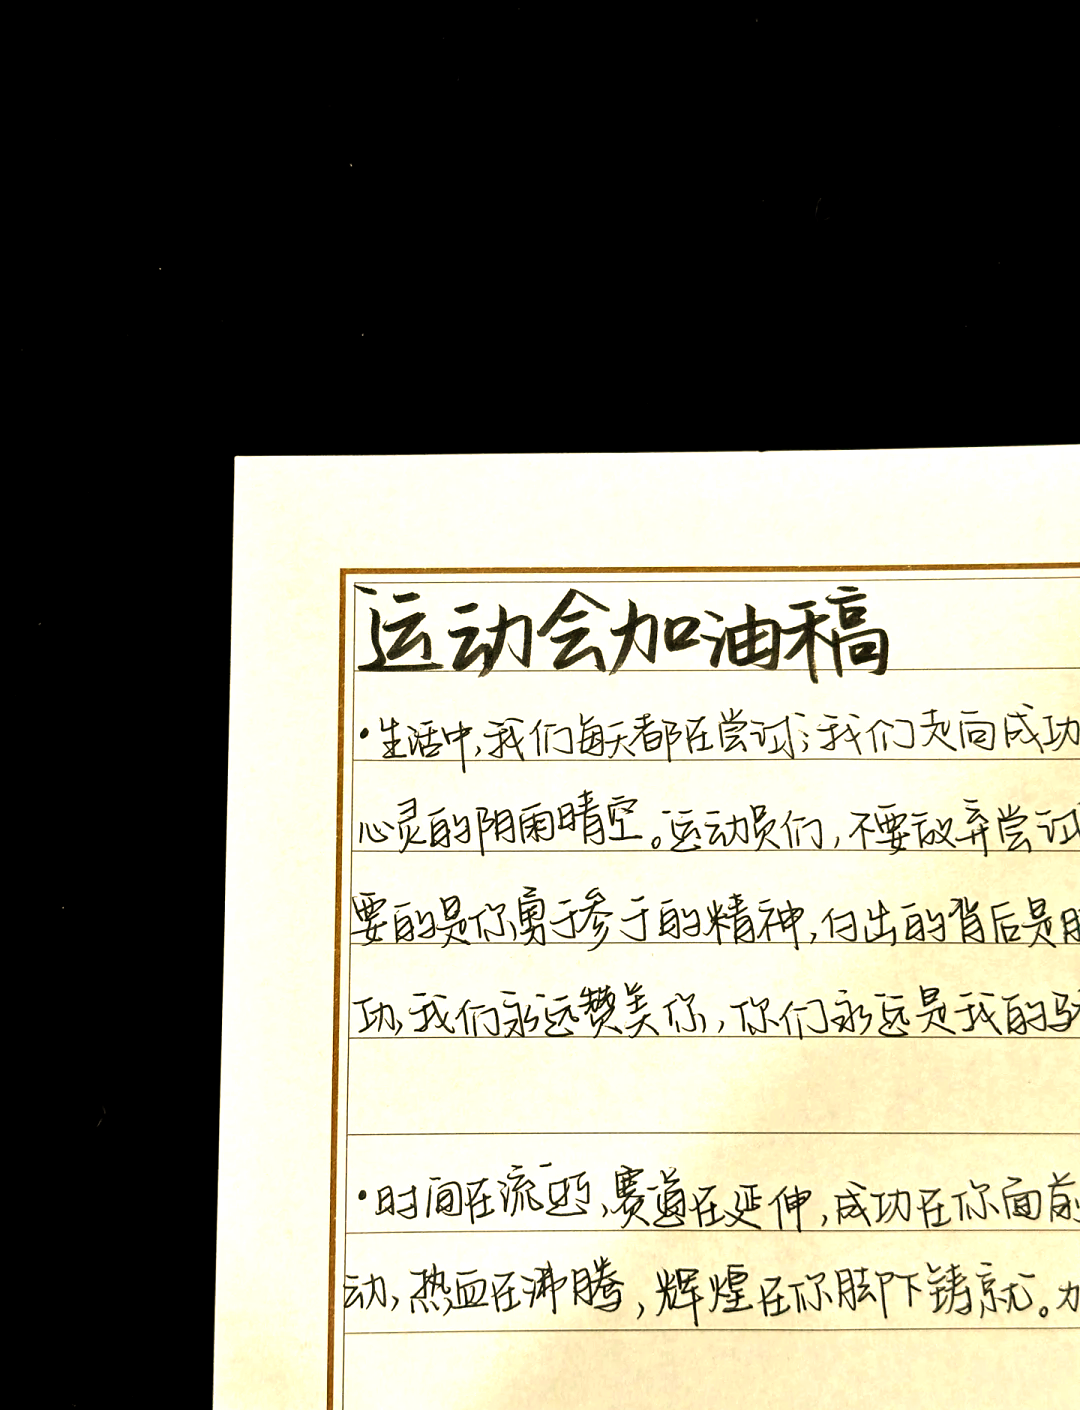 运动会加油稿
·生活中,我们每天都在尝试;我们走向成功
心灵的阴雨晴空。运动员们,不要放弃尝试
要的是你勇于参于的精神,付出的背后是
功,我们永远赞美你,你们永远是我的
·时间在流逝,赛道在延伸,成功在你面前
动,热血在沸腾,辉煌在你脚下铸就。